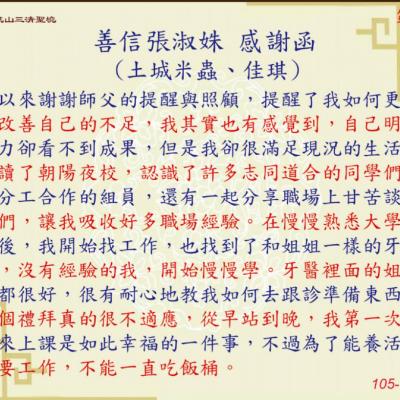 山三清聖境
善信張淑姝 感謝函
（土城米蟲、佳琪）
以來謝謝師父的提醒與照顧，提醒了我如何更
改善自己的不足，我其實也有感覺到，自己明
力卻看不到成果，但是我卻很滿足現況的生活
讀了朝陽夜校，認識了許多志同道合的同學們
分工合作的組員，還有一起分享職場上甘苦談
們，讓我吸收好多職場經驗。在慢慢熟悉大學
後，我開始找工作，也找到了和姐姐一樣的牙
，沒有經驗的我，開始慢慢學。牙醫裡面的姐
都很好，很有耐心地教我如何去跟診準備東西
個禮拜真的很不適應，從早站到晚，我第一次
來上課是如此幸福的一件事，不過為了能養活
要工作，不能一直吃飯桶。
105-